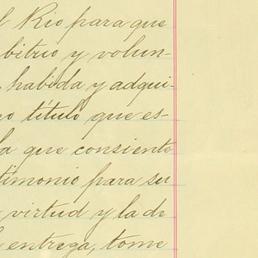 l Rio para que
bitrio y volun-
habida y adqui-
o título que es-
la que consiente
timonio para su
virtud y la de
entrega, tome